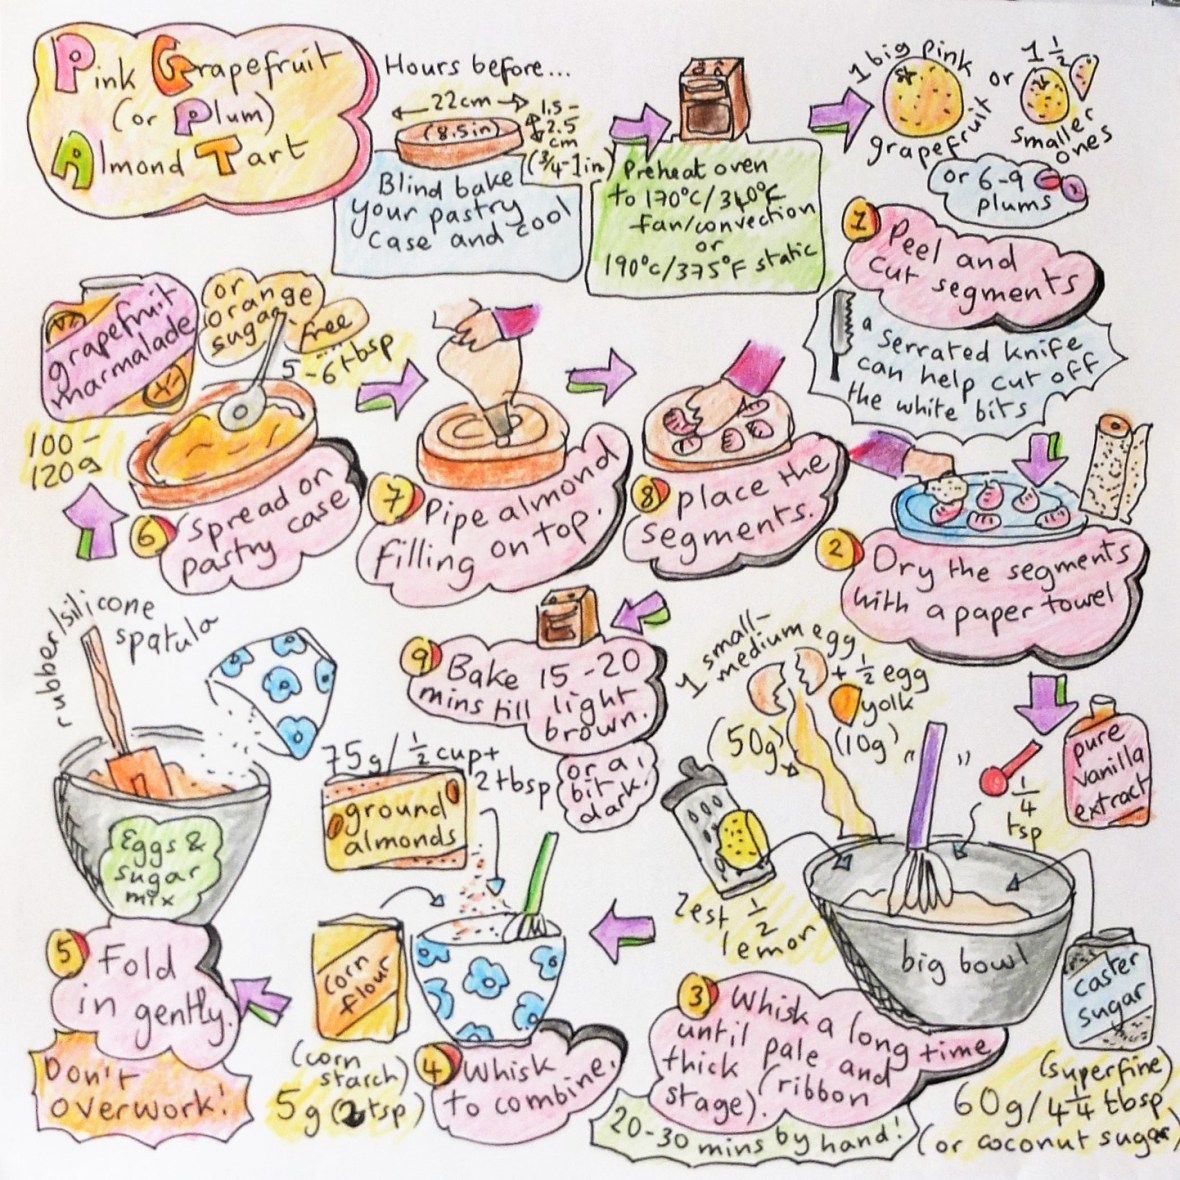 Pink Grapefruit
(or Plum)
Almond Tart
Hours before...
22cm
(8.5in)
1.5-
2.5
cm
(3/4-1in)
Blind bake
your pastry
case and cool
Preheat oven
to 170°C/340°F
fan/convection
or
190°C/375°F static
1 big pink
grapefruit
or
1 1/2
smaller
ones
or 6-9
plums
1
Peel and
cut segments
a
serrated knife
can help cut off
the white bits
2
Dry the segments
with a paper towel
1 small-
medium egg
+ 1/2 egg
yolk
(50g)
(10g)
pure
vanilla
extract
1/4
tsp
zest 1/2
lemon
big bowl
caster
sugar
(superfine)
60g/4 1/4 tbsp
(or coconut sugar)
3
Whisk a long time
until pale and
thick (ribbon
stage).
20-30 mins by hand!
75g/ 1/2 cup+
2 tbsp
ground
almonds
corn
flour
(corn
starch)
5g (2 tsp)
4
Whisk
to combine.
rubber/silicone
spatula
Eggs &
sugar
mix
5
Fold
in gently.
Don't
overwork!
grapefruit
marmalade
or
orange
sugar
free
5-6 tbsp
100-
120g
6
Spread on
pastry case
7
Pipe almond
filling on top.
8
place the
segments.
9
Bake 15-20
mins till light
brown.
or a
bit
dark!